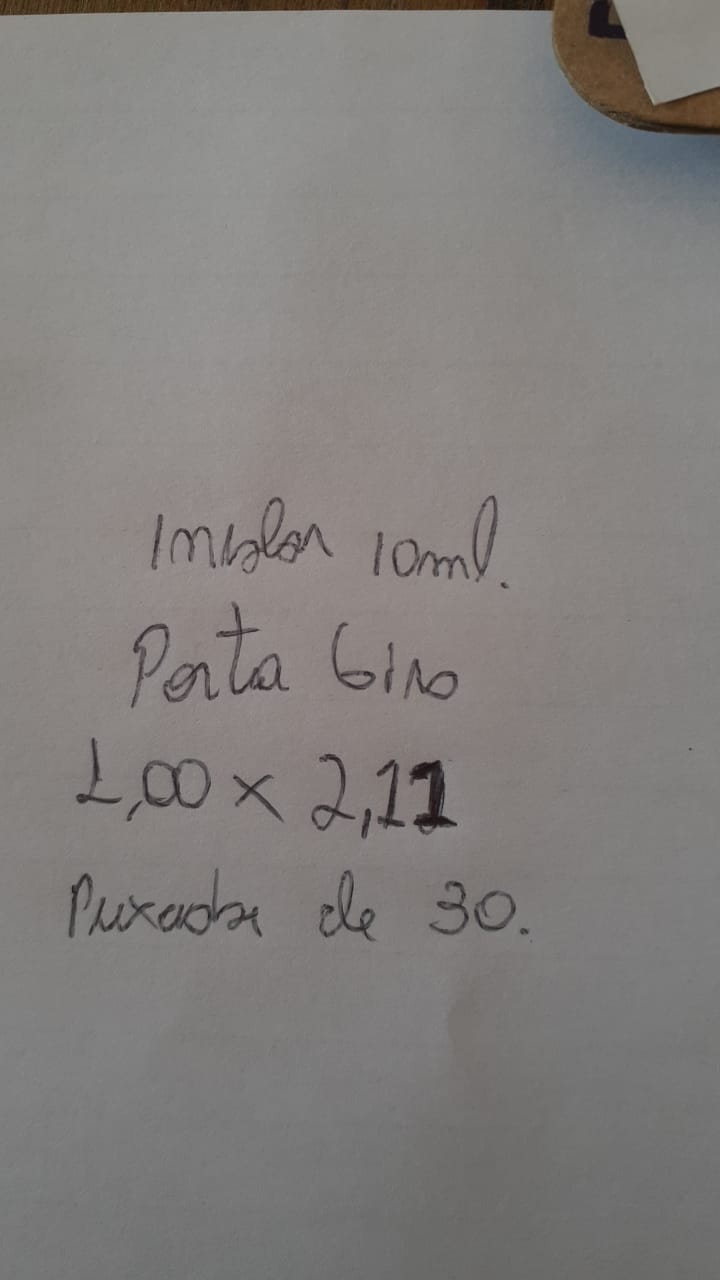 Incolor 10ml.
Porta Giro
1,00 x 2,11
Puxador de 30.